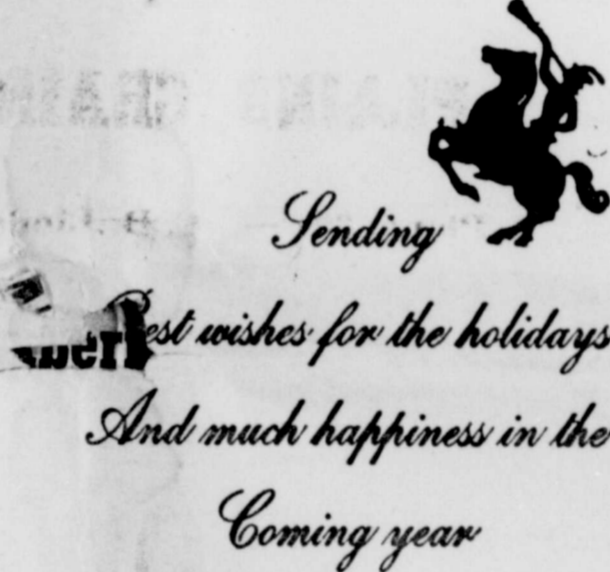 Sending
Best wishes for the holidays
And much happiness in the
Coming year